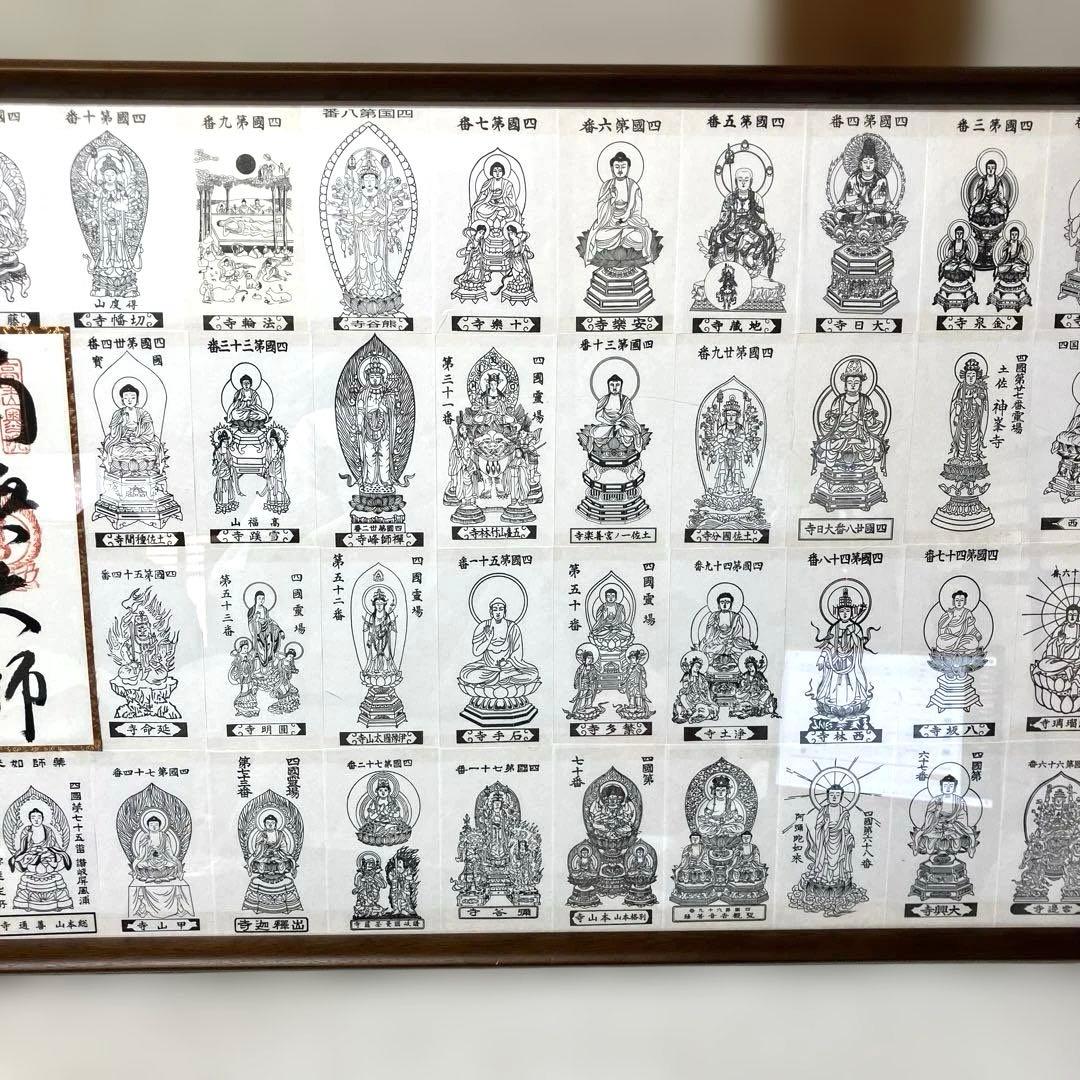 四國第三番
金泉寺
四國第四番
大日寺
四國第五番
地蔵寺
四國第六番
安樂寺
四國第七番
十樂寺
四国第八番
熊谷寺
四國第九番
法輪寺
四國第十番
得度山
切幡寺
藤
西
四國第廿七番霊場
土佐 神峯寺
四國廿八番大日寺
四國第廿九番
土佐國分寺
四國第三十番
土佐一ノ宮善楽寺
四國霊場
第三十一番
五臺山竹林寺
四國第卅二番
禅師峰寺
四國第三十三番
高福山
雪蹊寺
四國第卅四番
國寶
土佐種間寺
師
瑠璃寺
四國第四十七番
八坂寺
四國第四十八番
西林寺
四國第四十九番
淨土寺
四國霊場
第五十番
繁多寺
四國第五十一番
石手寺
四國霊場
第五十二番
伊豫國太山寺
四國霊場
第五十三番
圓明寺
四國第五十四番
延命寺
國第六十六番
雲邊寺
四國第
六十七番
大興寺
四國第六十八番
阿彌陀如來
聖觀世音菩薩
四國第
七十番
別格本山本山寺
四國第七十一番
彌谷寺
四國第七十二番
讃岐國曼荼羅寺
四國霊場
第七十三番
出釋迦寺
四國第七十四番
甲山寺
藥師如
四國第七十五番 讃岐屏風浦
総本山善通寺